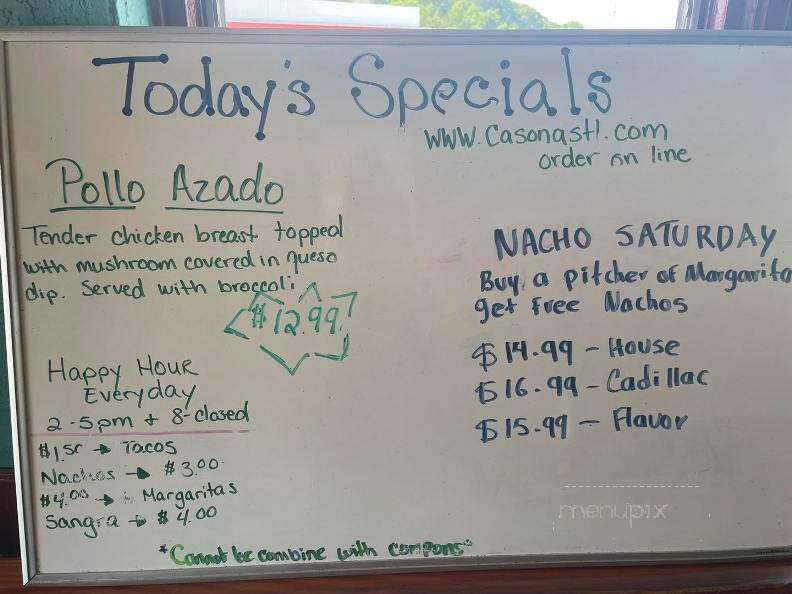 Today's Specials
www.casonastl.com
order on line
Pollo Azado
Tender chicken breast topped
with mushroom covered in queso
dip. Served with broccoli
$12.99
NACHO SATURDAY
Buy a pitcher of Margarita
get free Nachos
$14.99 - House
$16.99 - Cadillac
$15.99 - Flavor
Happy Hour
Everyday
2-5pm + 8-closed
$1.50 → Tacos
Nachos → $3.00
$4.00 → Margaritas
Sangra → $4.00
*Cannot be combine with compons*
menupix